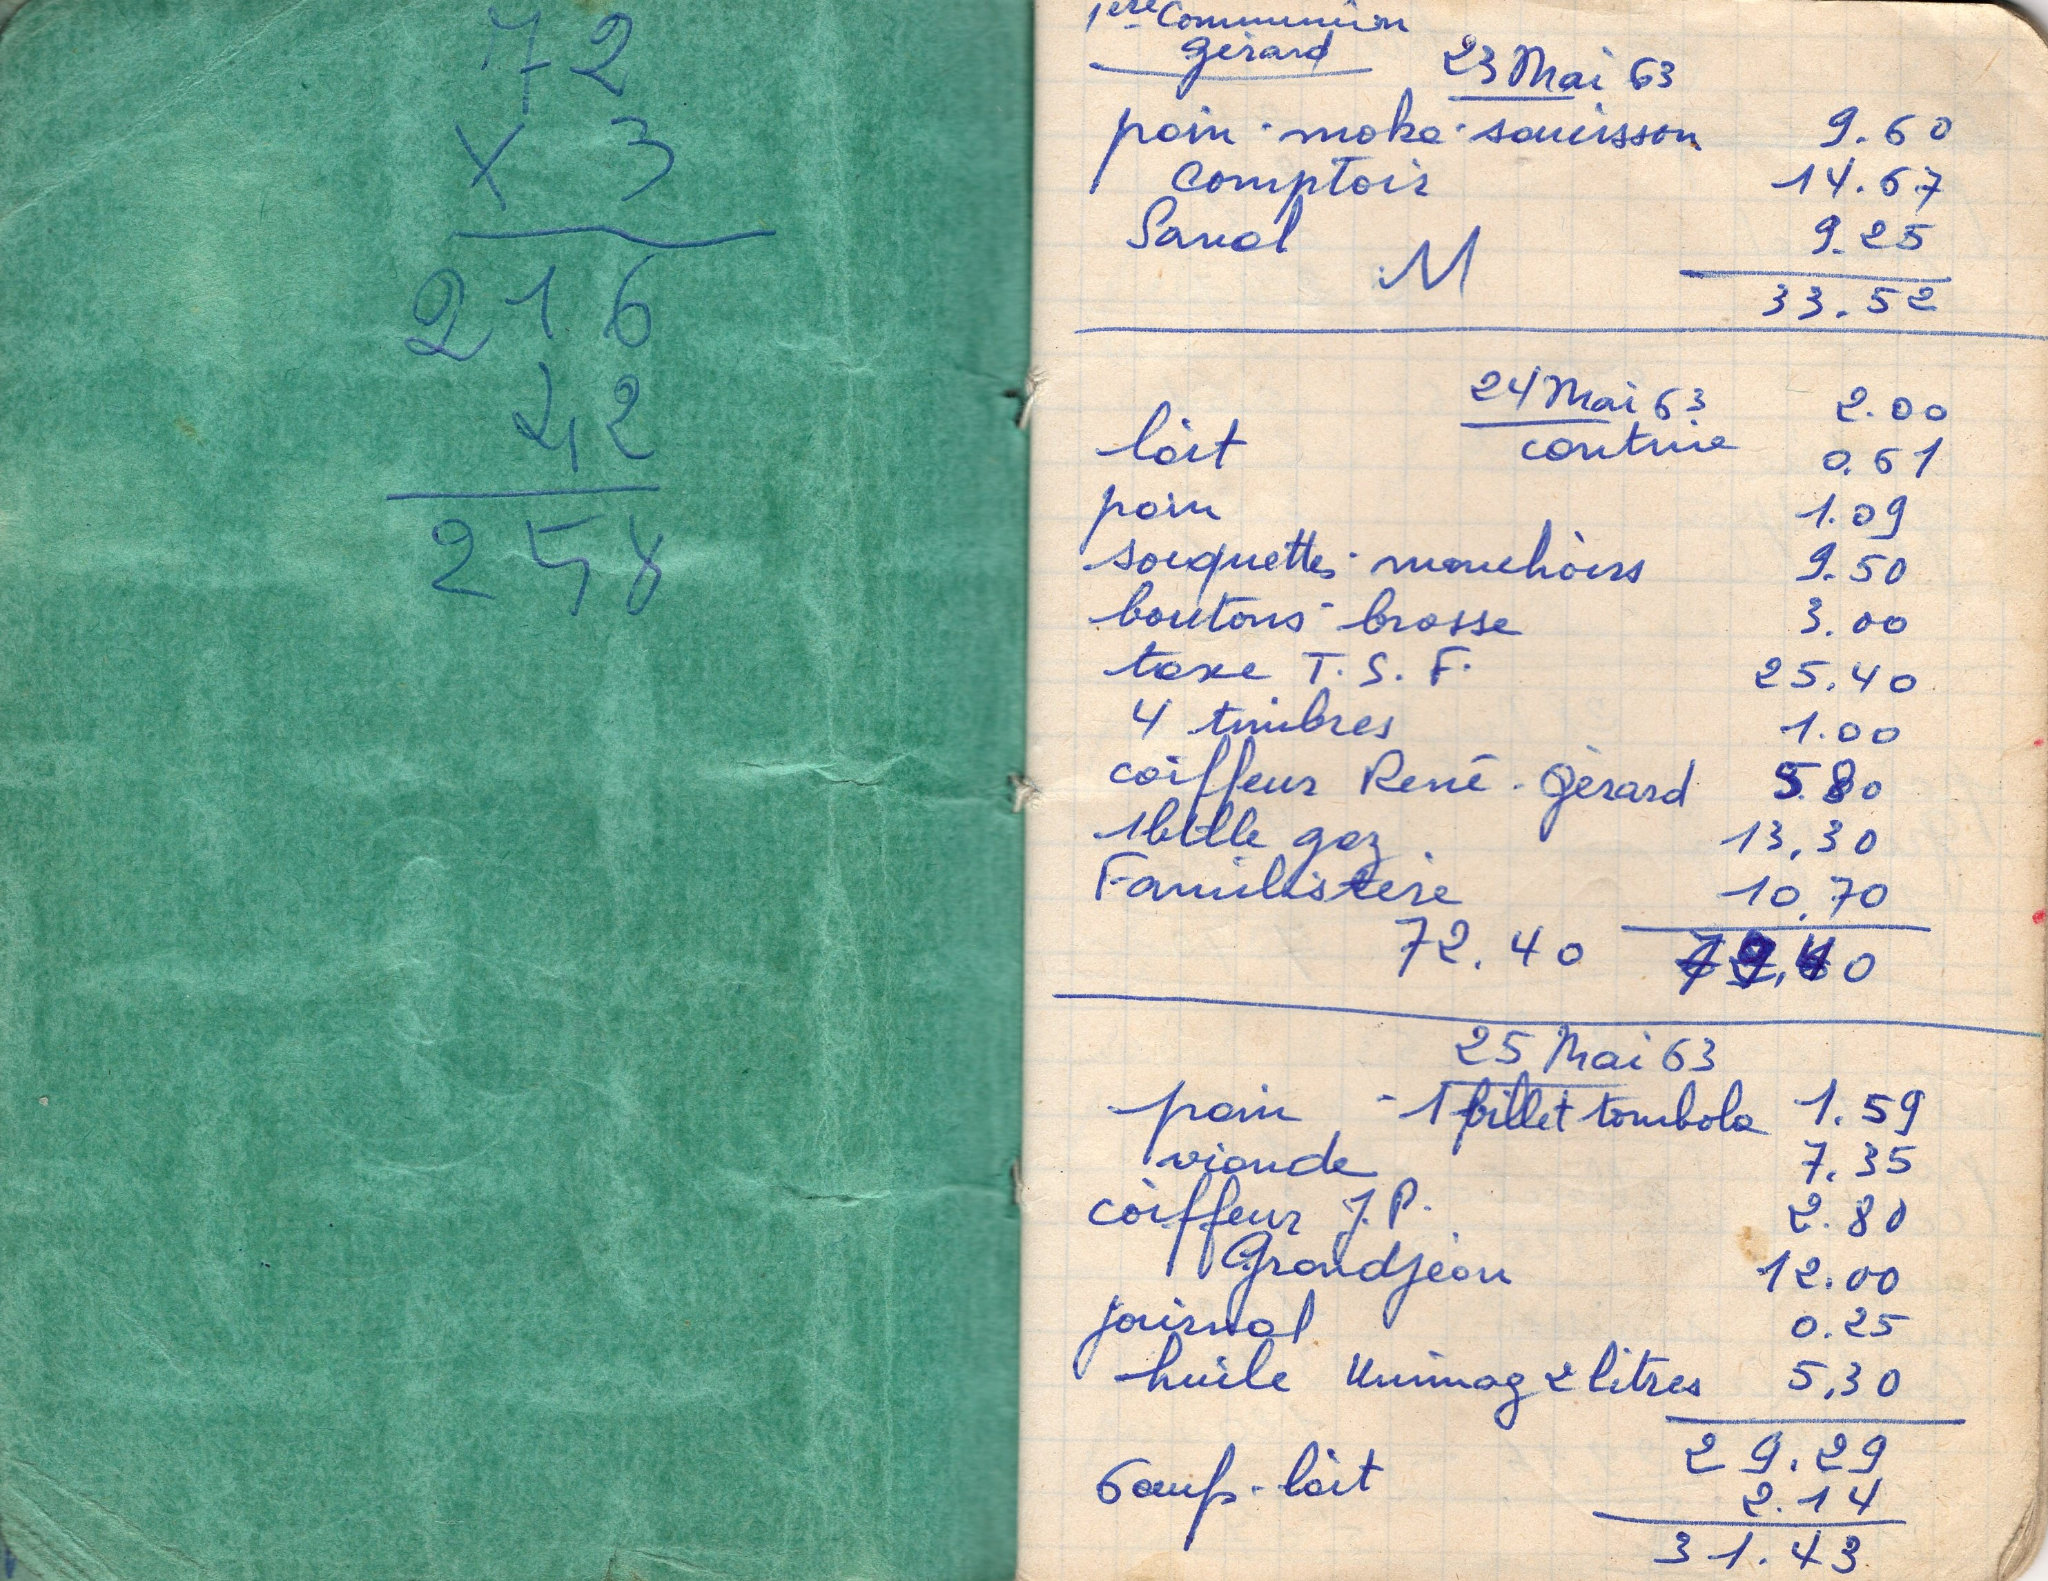 72
x 3
216
42
258
1ère Communion
Gérard
23 Mai 63
pain - moka - saucisson 9.60
Comptoir 14.67
Sanal 9.25
M
33.52
24 Mai 63 2.00
lait couture 0.61
pain 1.09
socquettes - mouchoirs 9.50
boutons - brosse 3.00
taxe T.S.F. 25.40
4 timbres 1.00
coiffeur René - Gérard 5.80
1 btlle gaz 13,30
Familistère 10,70
72.40
25 Mai 63
pain - 1 billet tombola 1.59
viande 7.35
coiffeur J.P. 2.80
Grandjean 12.00
journal 0.25
huile Unimag 2 litres 5,30
29.29
6 œufs - lait 2.14
31.43